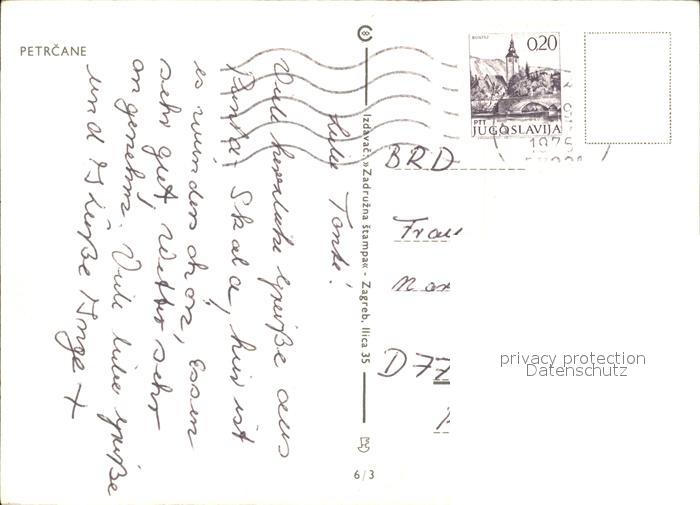 PETRČANE
Liebe Tante!
Viele herzliche Grüße aus
Punta Skala, hier ist
es wunderschön, Essen
sehr gut, Wetter sehr
angenehm. Viele liebe Grüße
und Küße Inge +
Izdavač: »Zadružna štampa« - Zagreb, Ilica 35
6/3
BOSTNJ
0,20
PTT
JUGOSLAVIJA
1975
BRD
Frau
D 77
privacy protection
Datenschutz